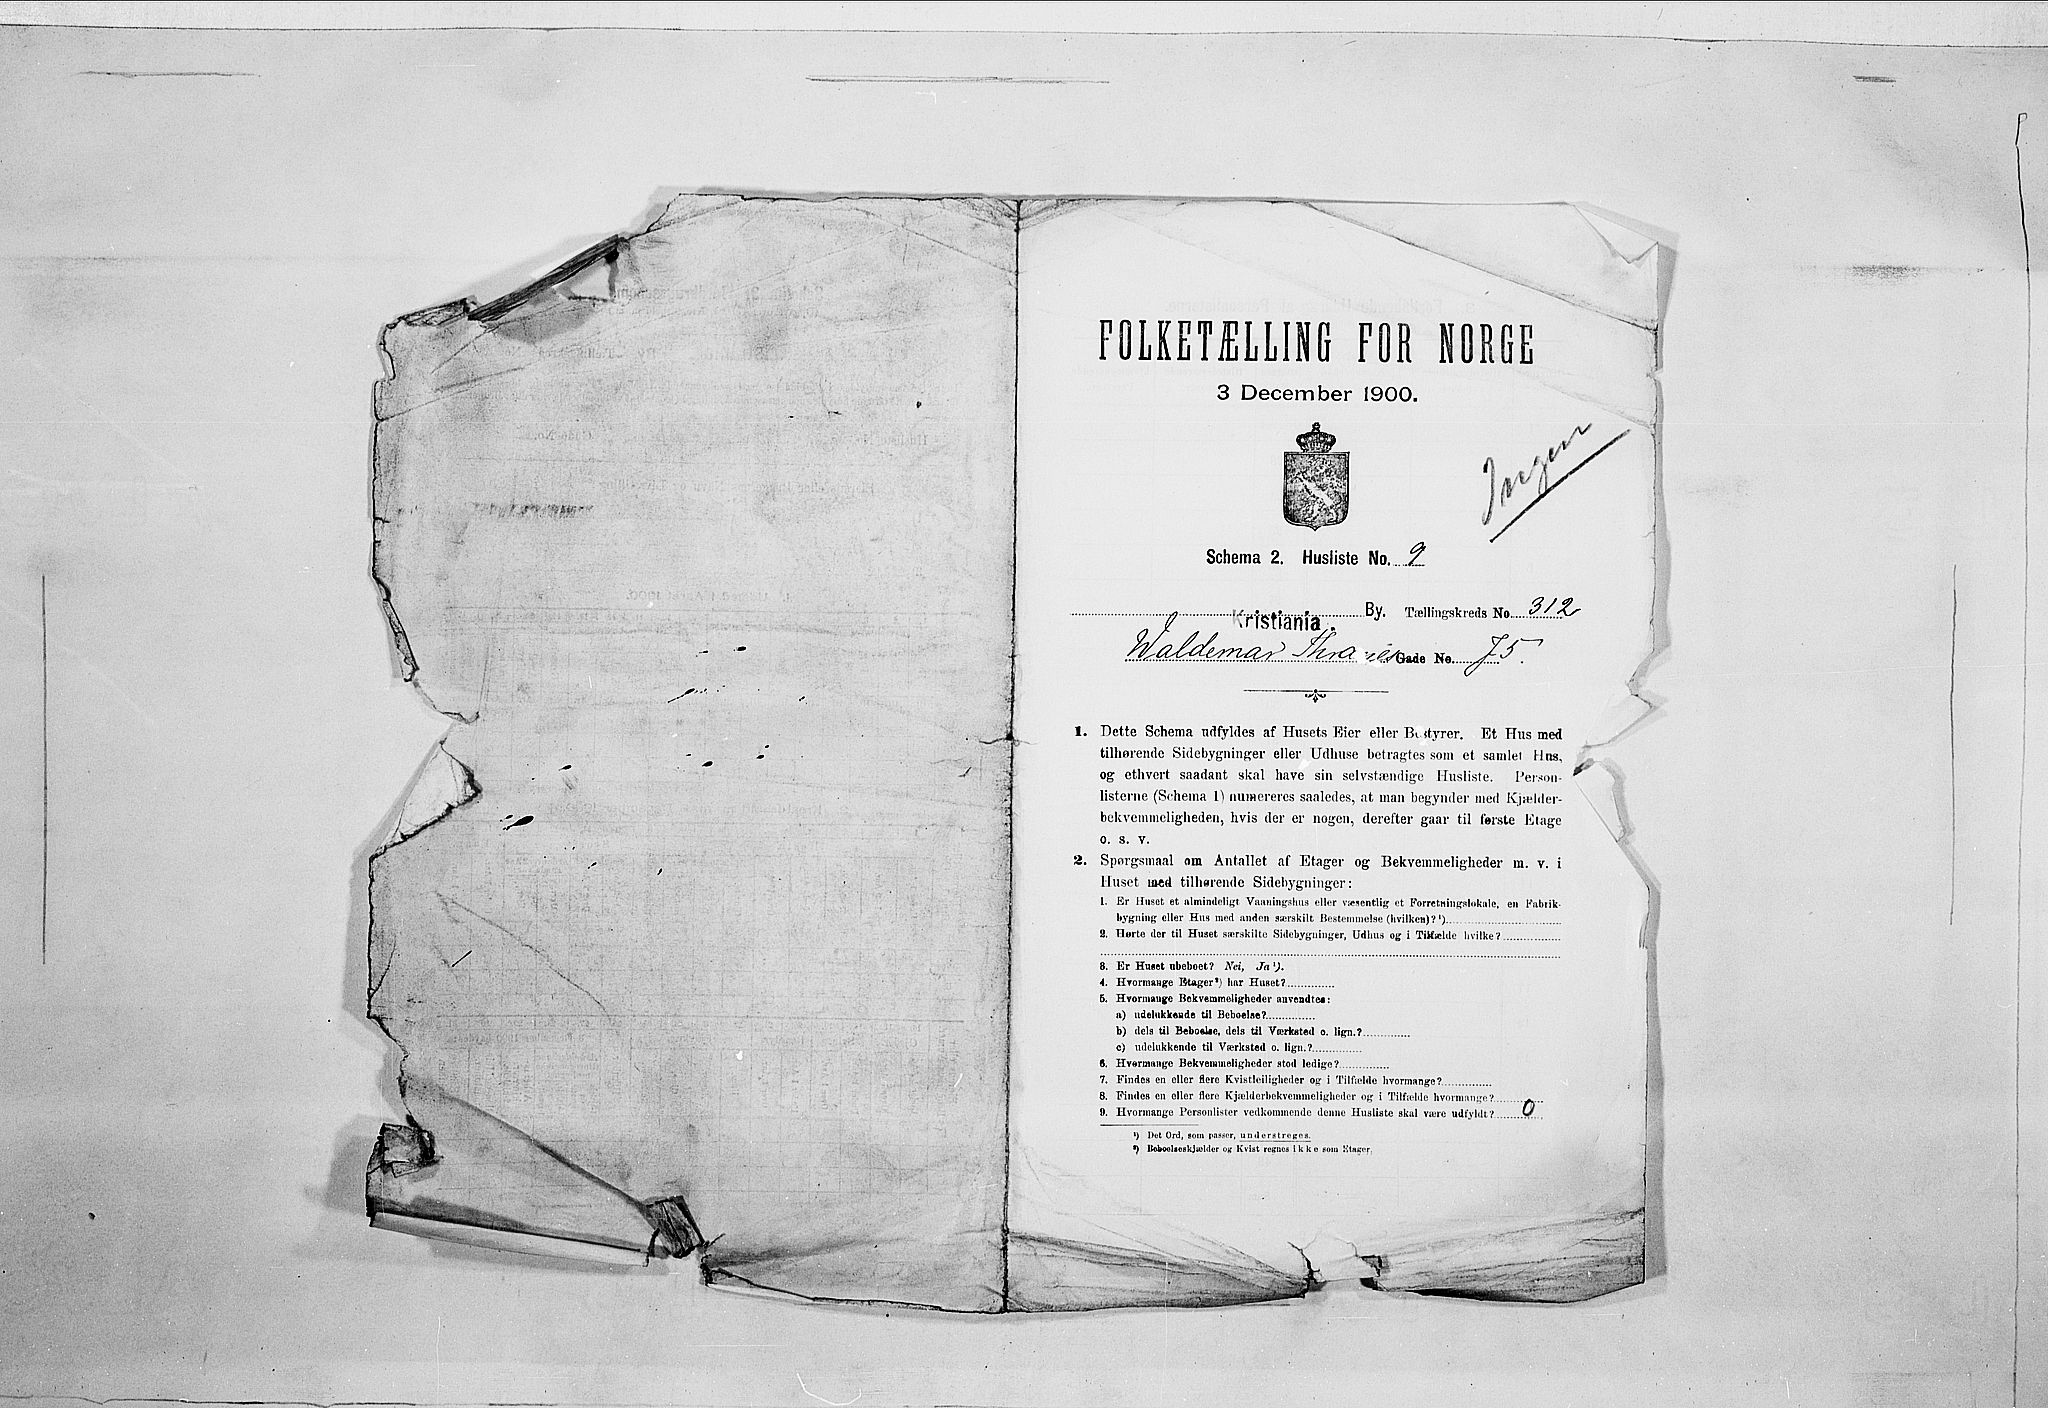 FOLKETÆLLING FOR NORGE
3 December 1900.
Ingen
Schema 2. Husliste No. 9
Kristiania. By. Tællingskreds No. 312
Waldemar Thranes Gade No. 75.
1. Dette Schema udfyldes af Husets Eier eller Bestyrer. Et Hus med
tilhørende Sidebygninger eller Udhuse betragtes som et samlet Hus,
og ethvert saadant skal have sin selvstændige Husliste. Person-
listerne (Schema 1) numereres saaledes, at man begynder med Kjælder-
bekvemmeligheden, hvis der er nogen, derefter gaar til første Etage
o. s. v.
2. Spørgsmaal om Antallet af Etager og Bekvemmeligheder m. v. i
Huset med tilhørende Sidebygninger:
1. Er Huset et almindeligt Vaaningshus eller væsentlig et Forretningslokale, en Fabrik-
bygning eller Hus med anden særskilt Bestemmelse (hvilken)? ¹)
2. Hørte der til Huset særskilte Sidebygninger, Udhus og i Tilfælde hvilke?
3. Er Huset ubeboet? Nei, Ja ¹).
4. Hvormange Etager ²) har Huset?
5. Hvormange Bekvemmeligheder anvendtes:
a) udelukkende til Beboelse?
b) dels til Beboelse, dels til Værksted o. lign.?
c) udelukkende til Værksted o. lign.?
6. Hvormange Bekvemmeligheder stod ledige?
7. Findes en eller flere Kvistleiligheder og i Tilfælde hvormange?
8. Findes en eller flere Kjælderbekvemmeligheder og i Tilfælde hvormange?
9. Hvormange Personlister vedkommende denne Husliste skal være udfyldt? 0
¹) Det Ord, som passer, understreges.
²) Beboelseskjælder og Kvist regnes ikke som Etager.